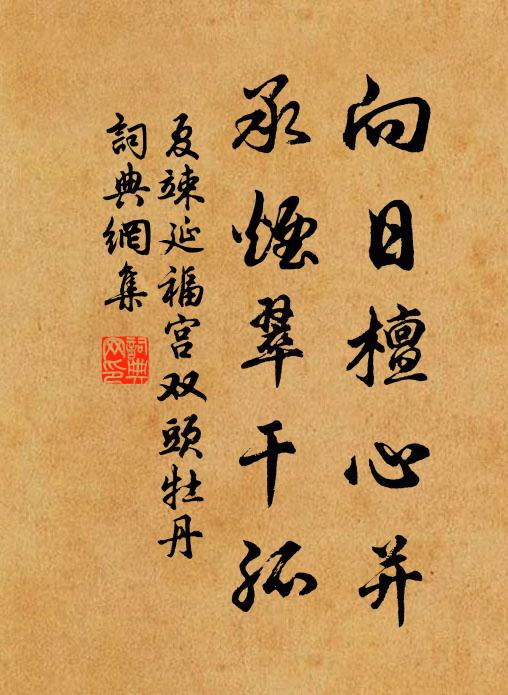 向日檀心并
承烟翠干孤
夏竦延福宫双頭牡丹
詞典網集
詞典网印